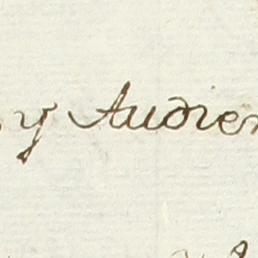 y Audien